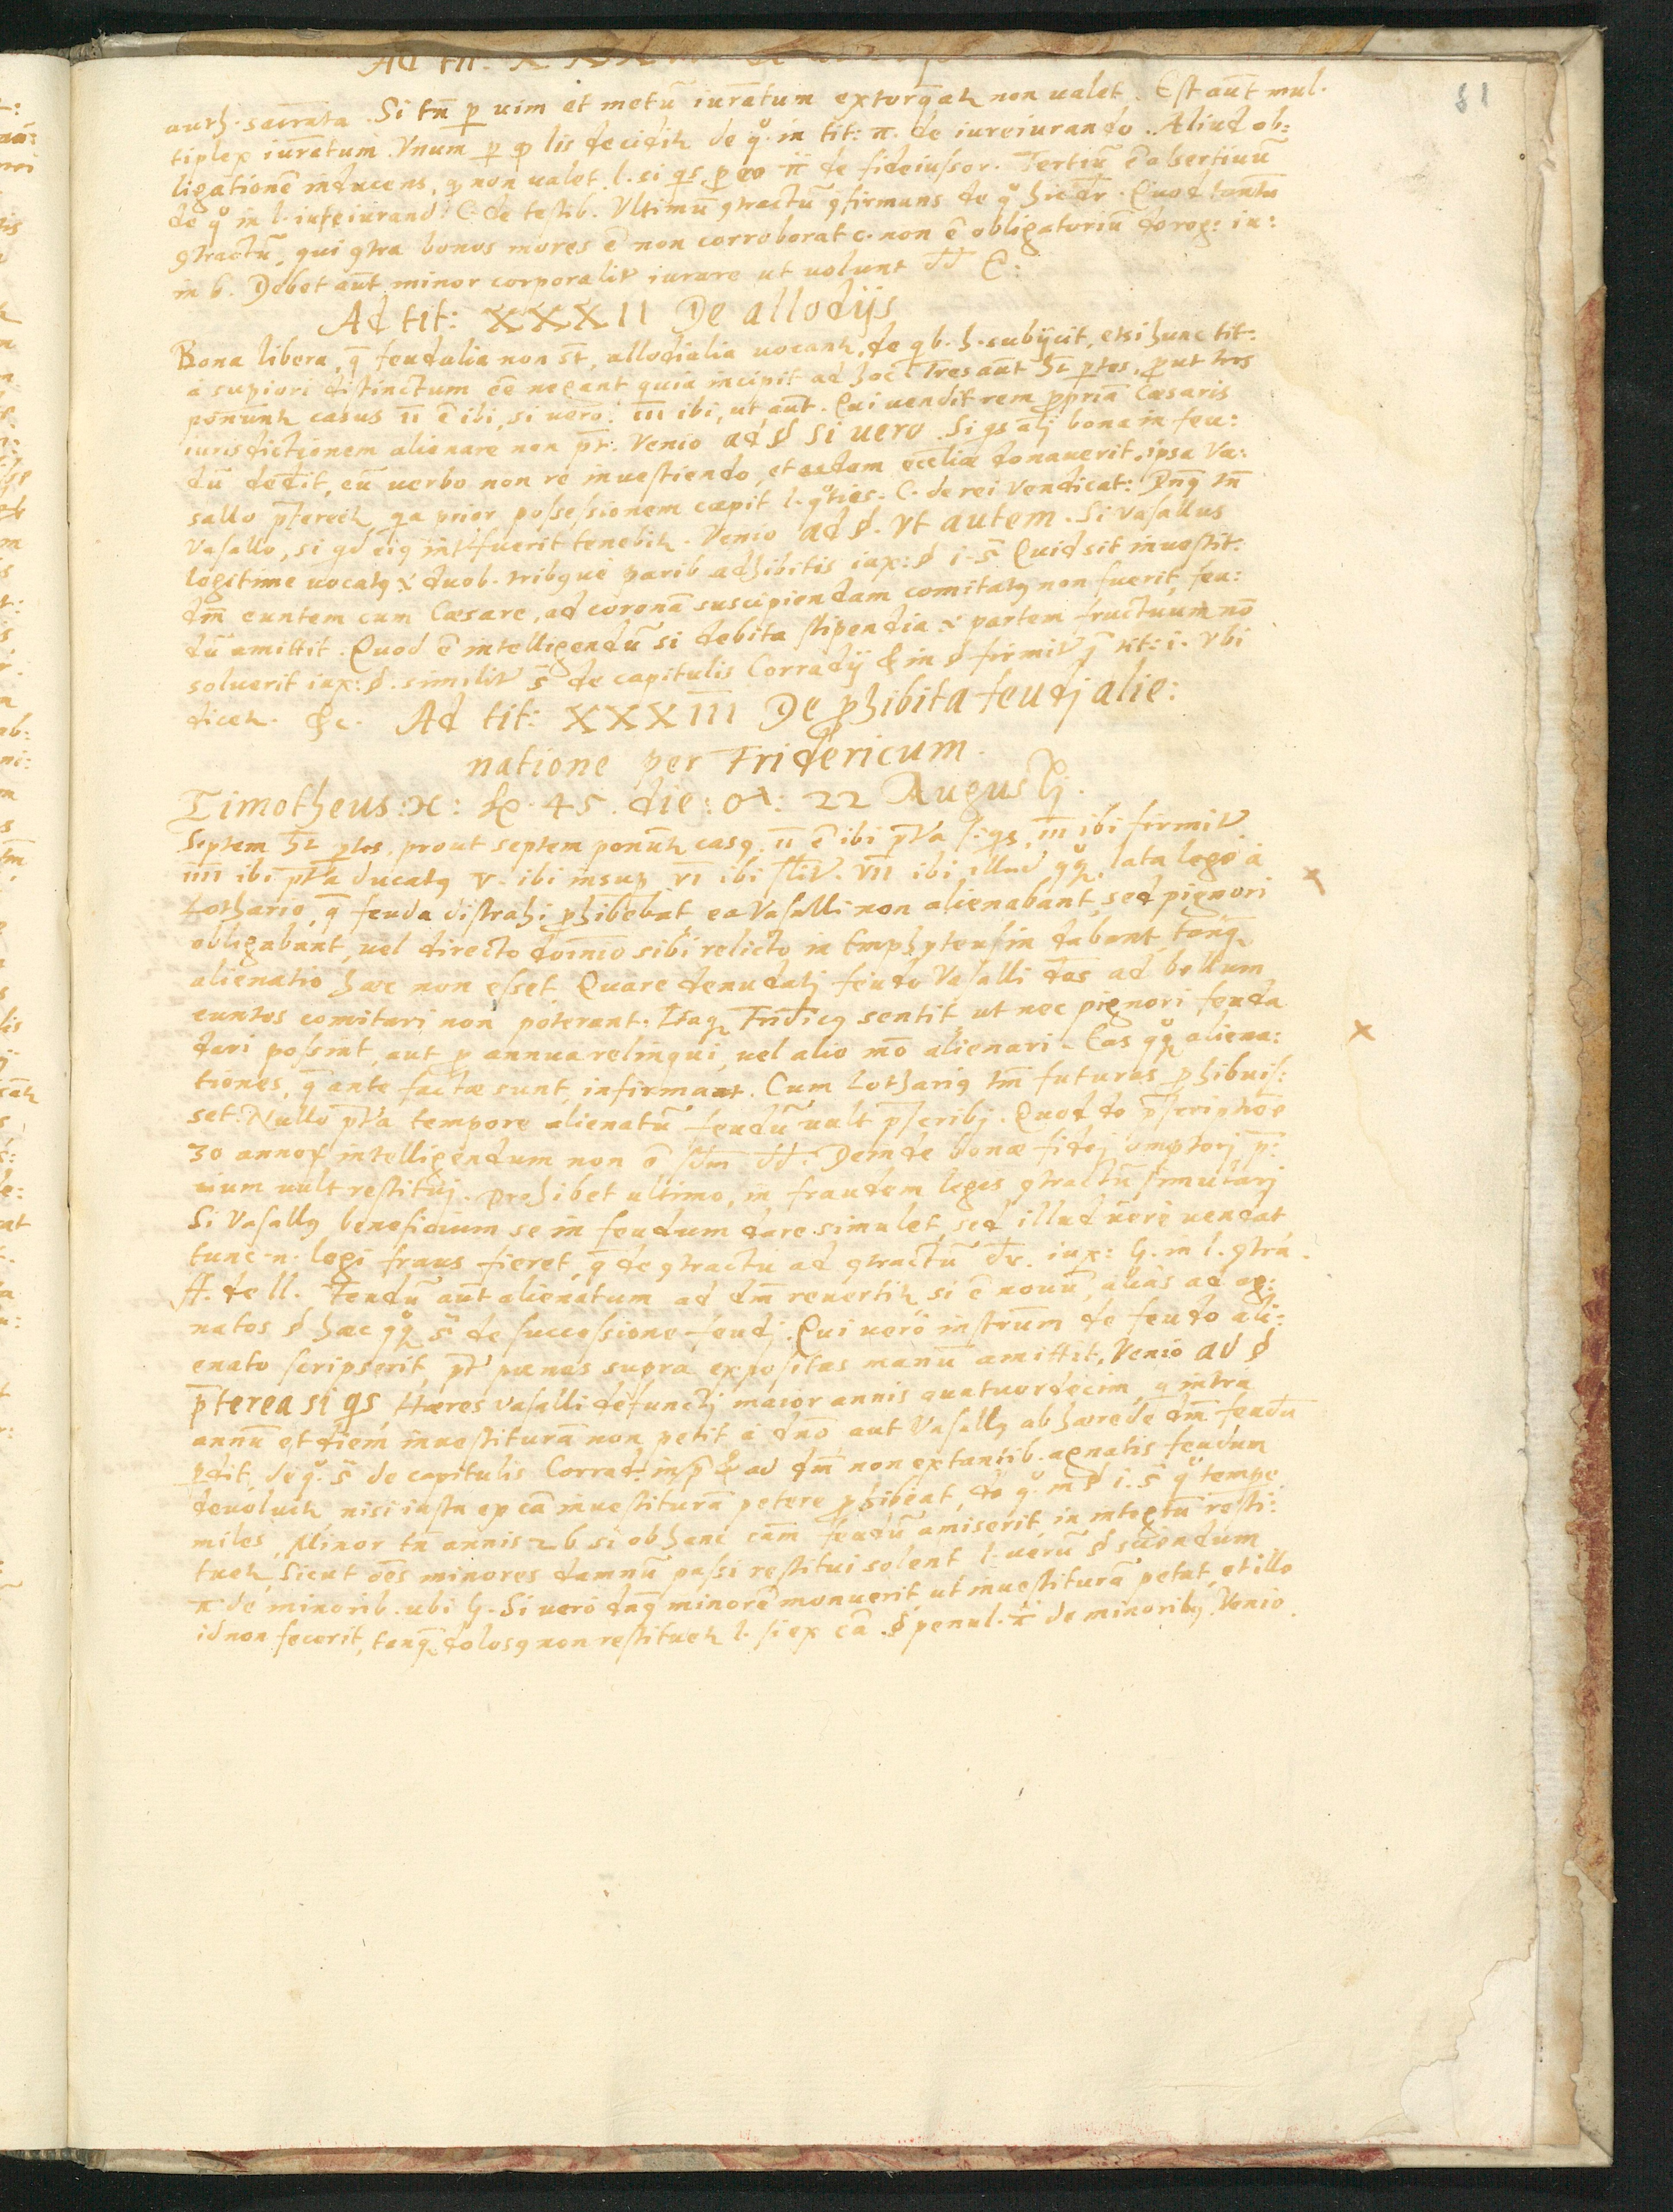 auth. sacramta. Si tn̄ p uim et metū iuratum extorqeatr non ualet. Est aut̄ mul-
tiplex iuratum. Vnum p qd lis decidir de qº. in tit: π. de iureiurando. Aliud ob:
ligationē inducens, qd non ualet l. si qs. p eo π de fideiussor. Tertiū ē assertiuū
de qº in l. iureiurandi C. de testib. Vltimū 9tractū 9firmans de qº hic dr̄. Quod tantu
9tractū, qui 9tra bonos mores ē non corroborat c. non ē obligatoriū de reg: iu:
in 6. Debet aut̄ minor corporalir iurare ut uolunt dd C:
Ad tit: XXXII De allodijs
Bona libera, q̄ feudalia non st̄, allodialia uocantr, de qb. h. subijcit, etsi hunc tit:
á supiori distinctum eē negant quia incipit ad hoc. Tres aut̄ ht̄ ptes, put tres
ponuntr casus II ē ibi, si uero. III ibi, ut aut̄. Qui uendit rem ppriā Cæsaris
iurisdictionem alienare non pt̄. Venio ad § Si uero. Si qs alij bona in feu:
dū dedit, eū uerbo non re inuestiendo, et eadem eccliæ donauerit, ipsa Va:
sallo pferetr qa prior possessionem cæpit l. qºties. C. de rei Vendicat: Dn̄9 tn̄
Vasallo, si qd ei9 intfuerit tenebir. Venio ad §. Vt autem. Si Vasallus
legitime uocat9 & duob. trib9que parib. adhibitis iux: § i. s̄ Quid sit inuestit:
dm̄ euntem cum Cæsare, ad coronā suscipiendam comitat9 non fuerit, feu:
dū amittit. Quod ē intelligendū si debita stipendia & partem fructuum nō
soluerit iux: §. similir s̄ de capitulis Corradij & in § firmir q̄ tit: i. Vbi
dicetr. &c. Ad tit: XXXIII De phibita feudj alie:
natione per Fridericum.
Timotheus: 45. die: 22 Augustj.
Septem ht̄ ptes, prout septem ponuntr cas9. II ē ibi pt̄ea si qs, III ibi firmir
IIII ibi pt̄ea ducat9 V. ibi insup VI ibi silir. VII ibi illud qq, lata lege á
Lothario, q̄ feuda distrahi phibebat ea Vasalli non alienabant, sed pignori
obligabant, uel directo dominio sibi relicto, in Emphyteusin dabant, tanq̄
alienatio hæc non esset. Quare denudatj feudo Vasalli dos ad bellum
euntes comitari non poterant. Itaq Fridric9 sentit ut nec pignori feuda
dari possint, aut p annua relinqui, uel alio mō alienari. Eas qq aliena:
tiones, q̄ ante factæ sunt, infirmant. Cum Lothari9 tm̄ futuras phibuis:
set. Nullo pt̄ea tempore alienatū feudū uult pscribj. Quod de pscriptioe
30 annor intelligendum non ē scdm dd. Deinde bonæ fidej emptorj p:
cium uult restituj. Prohibet ultimo, in fraudem legis 9tractū simularj
Si Vasall9 beneficium se in feudum dare simulet, sed illud uere uendat
tunc n. legi fraus fieret, q̄ de 9tractu ad 9tractū dr. iux: g. in l. 9tra.
ff. de ll. Feudū aut̄ alienatum ad dm̄ reuertir si ē nouū, alias ad ag:
natos § hæc qq s̄ de successione feudj. Qui uero instrum̄ de feudo ali:
enato scripserit, pt̄ pænas supra expositas manū amittit. Venio ad §
p̄terea si qs Hæres Vasalli defunctj maior annis quatuordecim, q intra
annū et diem inuestiturā non petit á dnō aut Vasall9 ab hærede dm̄ feudū
pdit, de qº. s̄ de capitulis Corrad: in p̄ & ad dm̄ non extantib. agnatis feudum
deuoluitr, nisi iusta ex cā inuestiturā petere phibeat, de qº. in § i. s̄ qº tempe
miles, Minor tn̄ annis 26 si ob hanc cām feudū amiserit, in integrū resti:
tuetr, Sicut oēs minores damnū passi restitui solent l. uerū § sciendum
π de minorib. ubi g. Si uero dn̄9 minorē monuerit ut inuestiturā petat, et illo
id non fecerit, tanq̄ dolos9 non restituetr l. si ex cā. § penul. π de minorib9. Venio